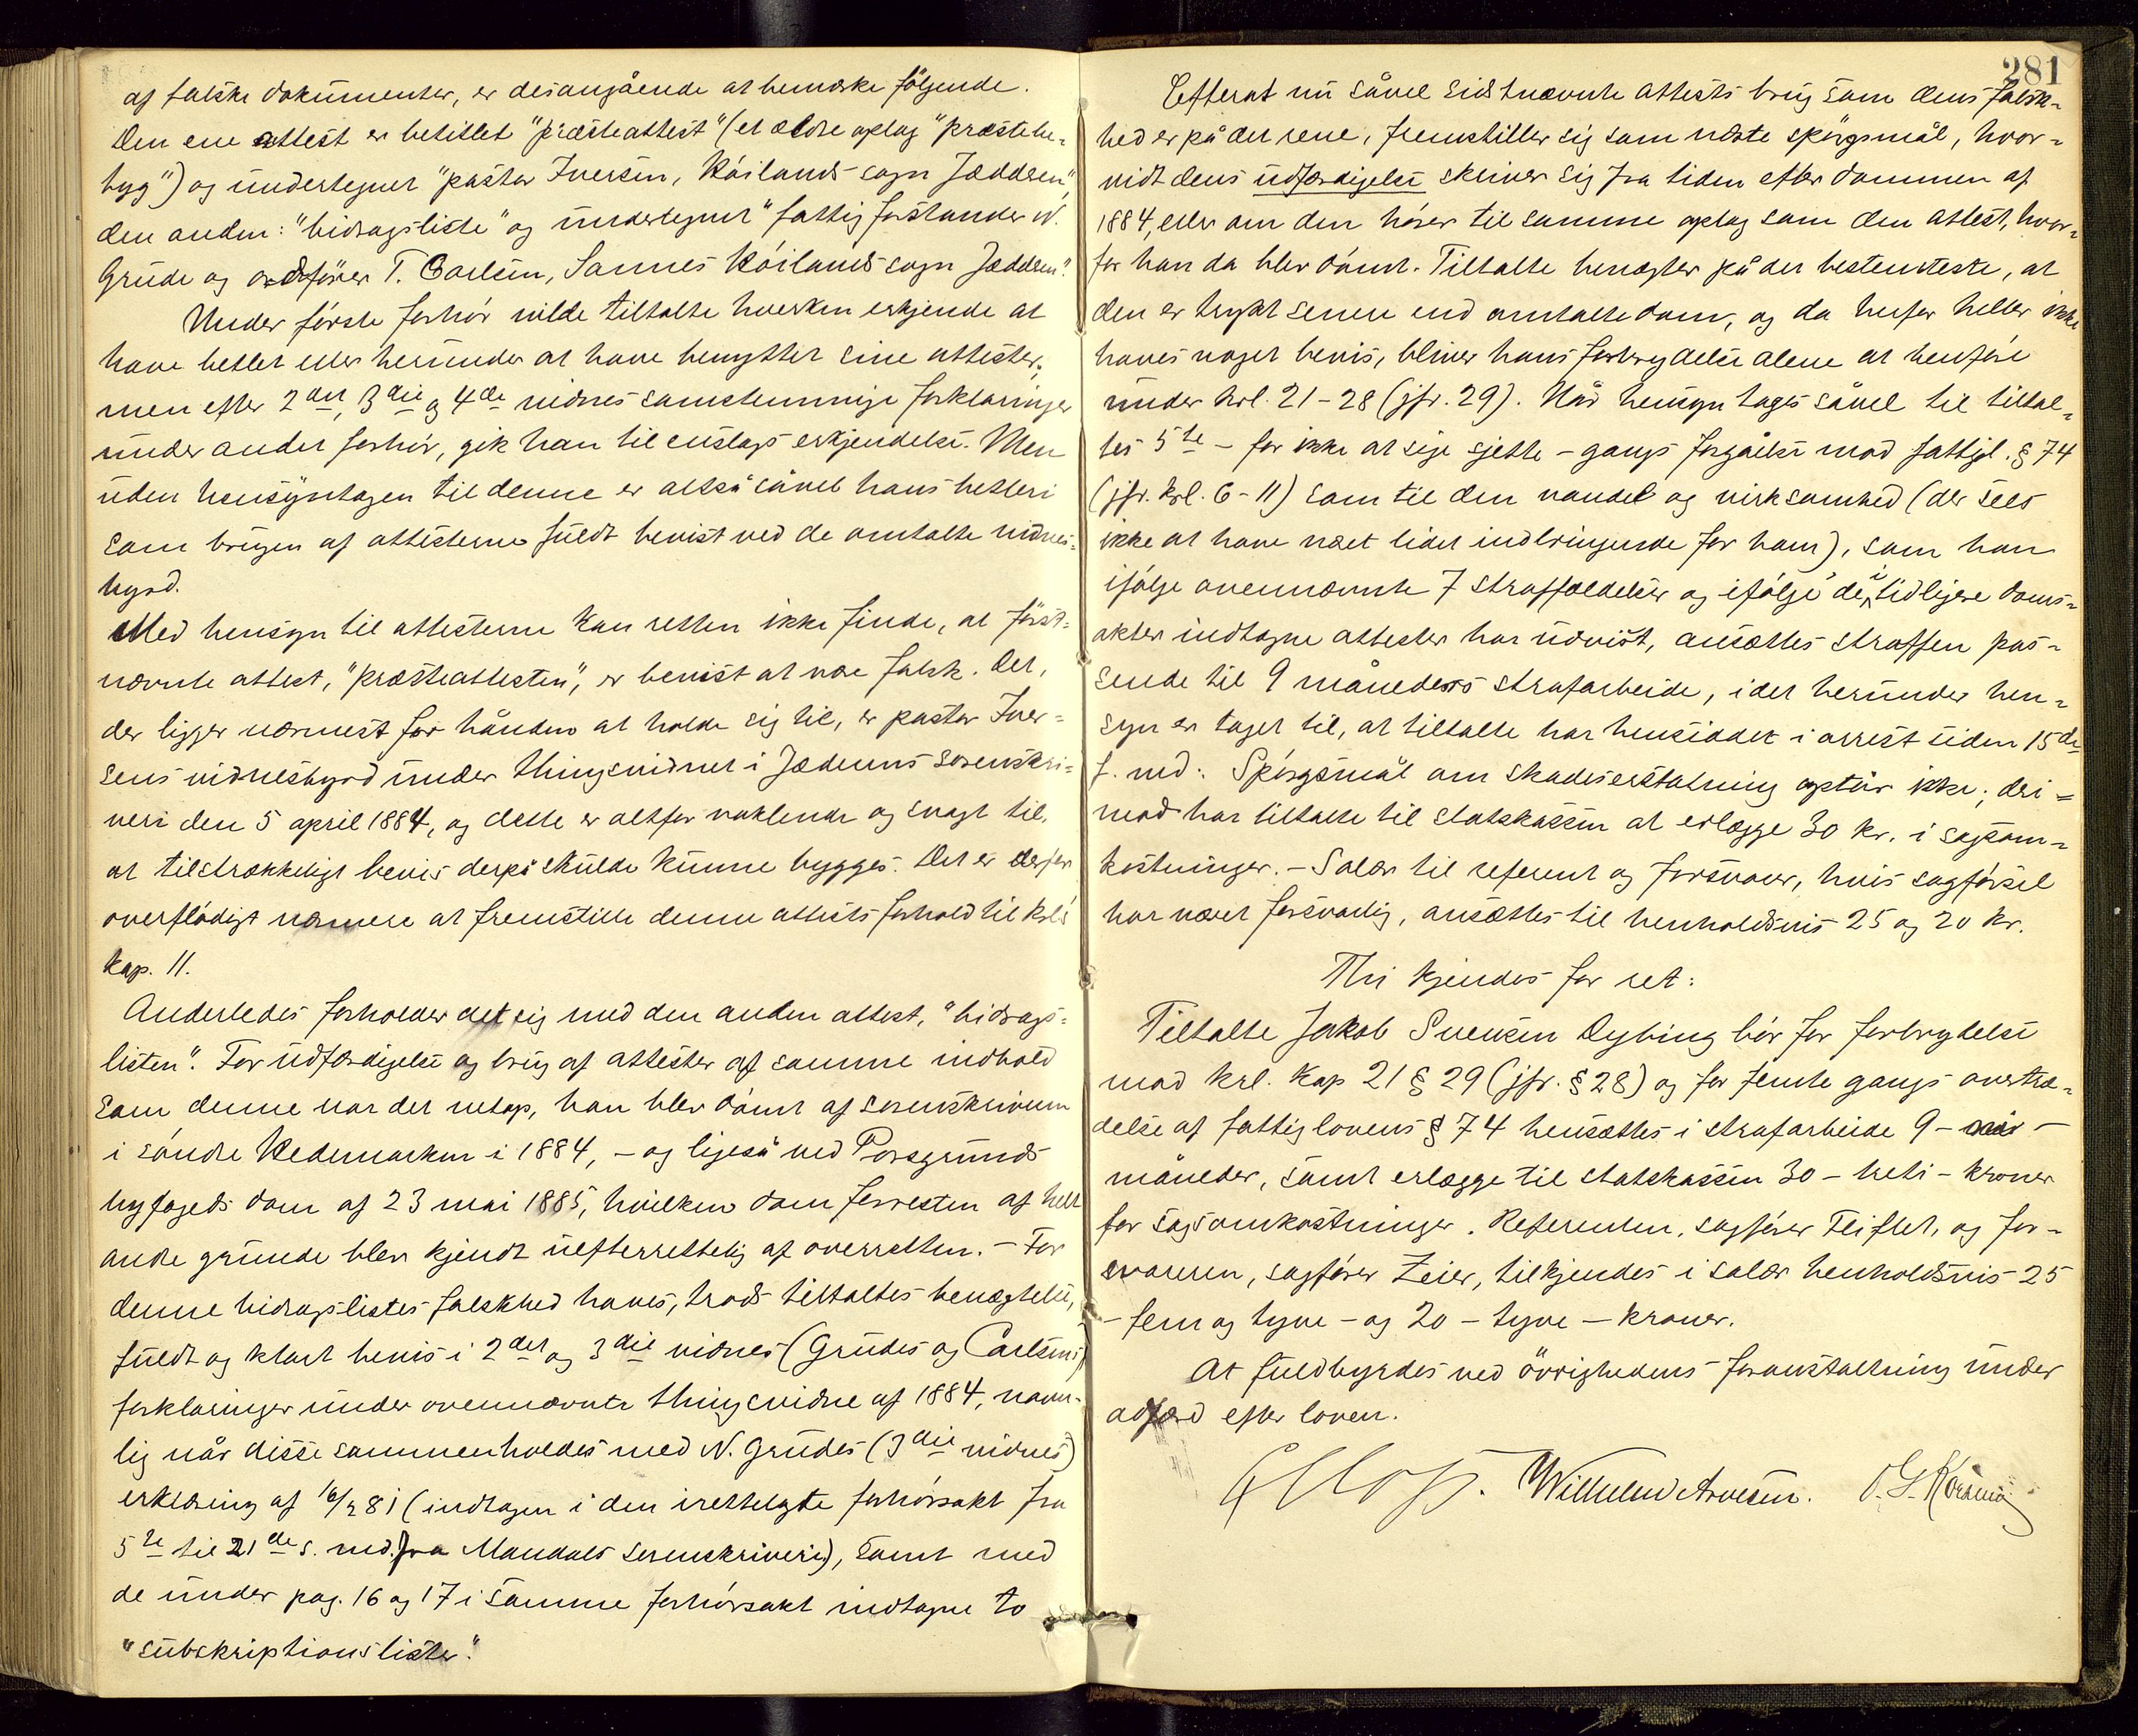 af falske dokumenter, er desangående at bemerke fölgende.
Den ene attest er betitlet "præsteattest" (et ældre oplag "præstebe-
byg") og undertegnet "pastor Iversen, Köilands sogn Jæddren",
den anden: "bidragsliste" og undertegnet "fattigforstander N.
Grude og ordförer T. Carlsen, Sannes Köilands sogn Jæddren".
Under förste forhör vilde tiltalte hverken erkjende at
have betlet eller herunder at have benyttet sine attester;
men efter 2det, 3die og 4de vidnes samstemmige forklaringer
under andet forhör, gik han til enslags erkjendelse. Men
uden hensyntagen til denne er altså såvel hans betleri
som brugen af attesterne fuldt bevist ved de omtalte vidnes-
byrd.
Med hensyn til attesterne kan retten ikke finde, at först-
nævnte attest, "præsteattesten", er bevist at være falsk. Det,
der ligger nærmest for hånden at holde sig til, er pastor Iver-
sens vidnesbyrd under thingsvidnet i Jæderens sorenskri-
veri den 5 april 1884, og dette er altfor vaklende og svagt til,
at tilstrækkeligt bevis derpå skulde kunne bygges. Det er derfor
overflödigt nærmere at fremstille denne attests forhold til krl's
kap. 11.
Anderledes forholder det sig med den anden attest, "bidrags-
listen". For udfærdigelse og brug af attester af samme indhold
som denne var det netop, han blev dömt af sorenskriveren
i söndre Hedemarken i 1884, – og ligeså ved Porsgrunds
byfogeds dom af 23 mai 1885, hvilken dom forresten af helt
andre grunde blev kjendt uefterrettelig af overretten. – For
denne bidragslistes falskhed haves, trods tiltaltes benægtelse,
fuldt og klart bevis i 2det og 3die vidnes (Grudes og Carlsens)
forklaringer under ovennævnte thingsvidne af 1884, navn-
lig når disse sammenholdes med N. Grudes (3die vidnes)
erklæring af 16/2 81 (indtagen i den irettelagte forhörsakt fra
5te til 21de s. md. fra Mandals sorenskriveri), samt med
de under pag. 16 og 17 i samme forhörsakt indtagne to
"subskriptionslister."
281
Efterat nu såvel sidstnævnte attests brug som dens falsk-
hed er på det rene, fremstiller sig som næste spörgsmål, hvor-
vidt dens udfærdigelse skriver sig fra tiden efter dommen af
1884, eller om den hörer til samme oplag som den attest, hvor-
for han da blev dömt. Tiltalte benægter på det bestemteste, at
den er trykt senere end omtalte dom, og da herfor heller ikke
haves noget bevis, bliver hans forbrydelse alene at henföre
under krl. 21-28 (jfr. 29). Når hensyn tages såvel til tiltal-
tes 5te – for ikke at sige sjette – gangs forgåelse mod fattigl. § 74
(jfr. krl. 6-11) som til den vandel og virksomhed (der sees
ikke at have været lidet indbringende for ham), som han
ifölge ovennævnte 7 straffældelser og ifölge de i tidligere doms-
akter indtagne attester har udvist, ansættes straffen pas-
sende til 9 måneders strafarbeide, idet herunder hen-
syn er taget til, at tiltalte har hensiddet i arrest siden 15de
f. md. Spörgsmål om skadeserstatning opstår ikke; deri-
mod har tiltalte til statskassen at erlægge 30 kr. i sagsom-
kostninger. – Salær til referent og forsvarer, hvis sagförsel
har været forsvarlig, ansættes til henholdsvis 25 og 20 kr.
Thi kjendes for ret:
Tiltalte Jakob Svensen Dybing bör for forbrydelse
mod krl. kap 21 § 29 (jfr. § 28) og for femte gangs overtræ-
delse af fattiglovens § 74 hensættes i strafarbeide 9 – ni –
måneder, samt erlægge til statskassen 30 – treti – kroner
for sagsomkostninger. Referenten, sagförer Fleiflet, og for-
svareren, sagförer Zeier, tilkjendes i salær henholdsvis 25
– fem og tyve – og 20 – tyve – kroner.
At fuldbyrdes ved övrighedens foranstaltning under
adfærd efter loven.
Wilhelm Arnesen.